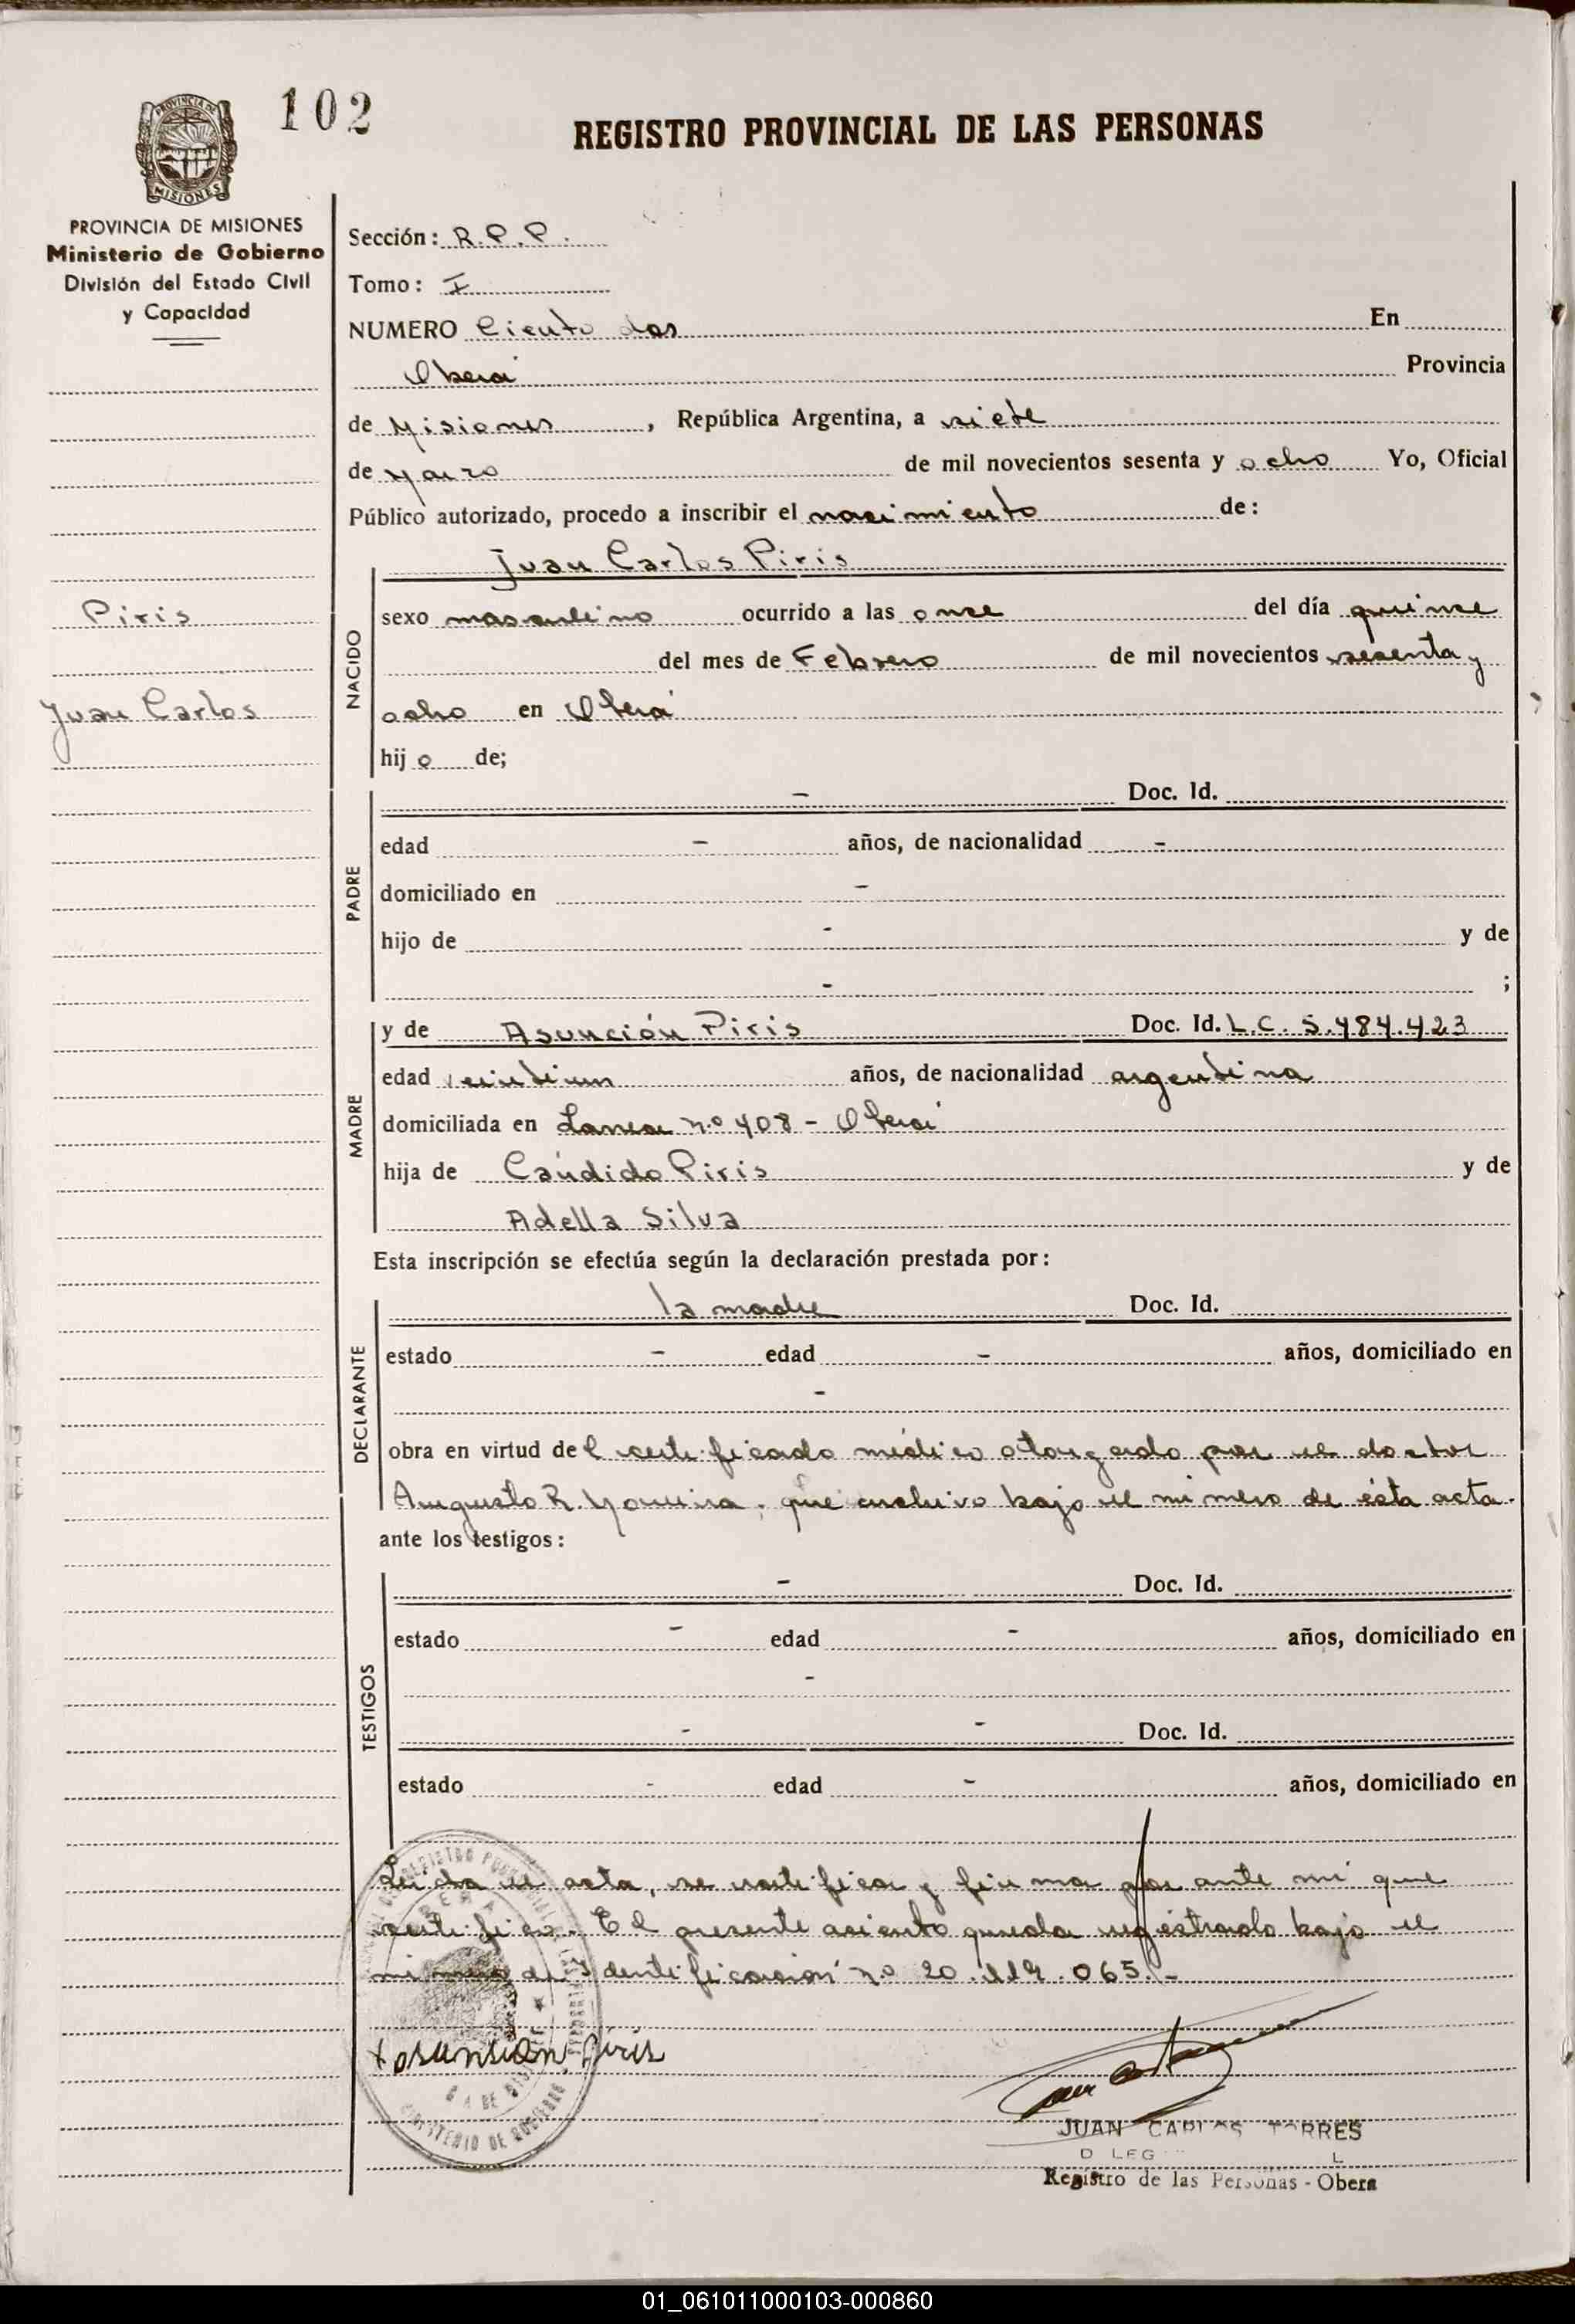 102
REGISTRO PROVINCIAL DE LAS PERSONAS
PROVINCIA DE
MISIONES
PROVINCIA DE MISIONES
Ministerio de Gobierno
División del Estado Civil
y Capacidad
Sección: R.P.P.
Tomo: I
NUMERO Ciento dos En
Oberá Provincia
de Misiones, República Argentina, a siete
de Marzo de mil novecientos sesenta y ocho Yo, Oficial
Público autorizado, procedo a inscribir el nacimiento de:
Juan Carlos Piris
Piris
Juan Carlos
NACIDO
sexo masculino ocurrido a las once del día quince
del mes de Febrero de mil novecientos sesenta y
ocho en Oberá
hijo de;
PADRE
- Doc. Id.
edad - años, de nacionalidad -
domiciliado en -
hijo de - y de
- ;
MADRE
y de Asunción Piris Doc. Id. L.C. 5.484.423
edad veintiun años, de nacionalidad argentina
domiciliada en nº 408 - Oberá
hija de Cándido Piris y de
Adella Silva
Esta inscripción se efectúa según la declaración prestada por:
DECLARANTE
la madre Doc. Id.
estado - edad - años, domiciliado en
-
obra en virtud del certificado médico otorgado por el doctor
Augusto R. que archivo bajo el número de ésta acta.
ante los testigos:
TESTIGOS
- Doc. Id.
estado - edad - años, domiciliado en
-
- - Doc. Id.
estado - edad - años, domiciliado en
Leida el acta, se ratifica y firma por ante mi que
certifico. El presente asiento queda registrado bajo el
número de Identificación nº 20.119.065.-
Asunsion Piris
MINISTERIO DE GOBIERNO
JUAN CARLOS TORRES
Registro de las Personas - Obera
01_061011000103-000860